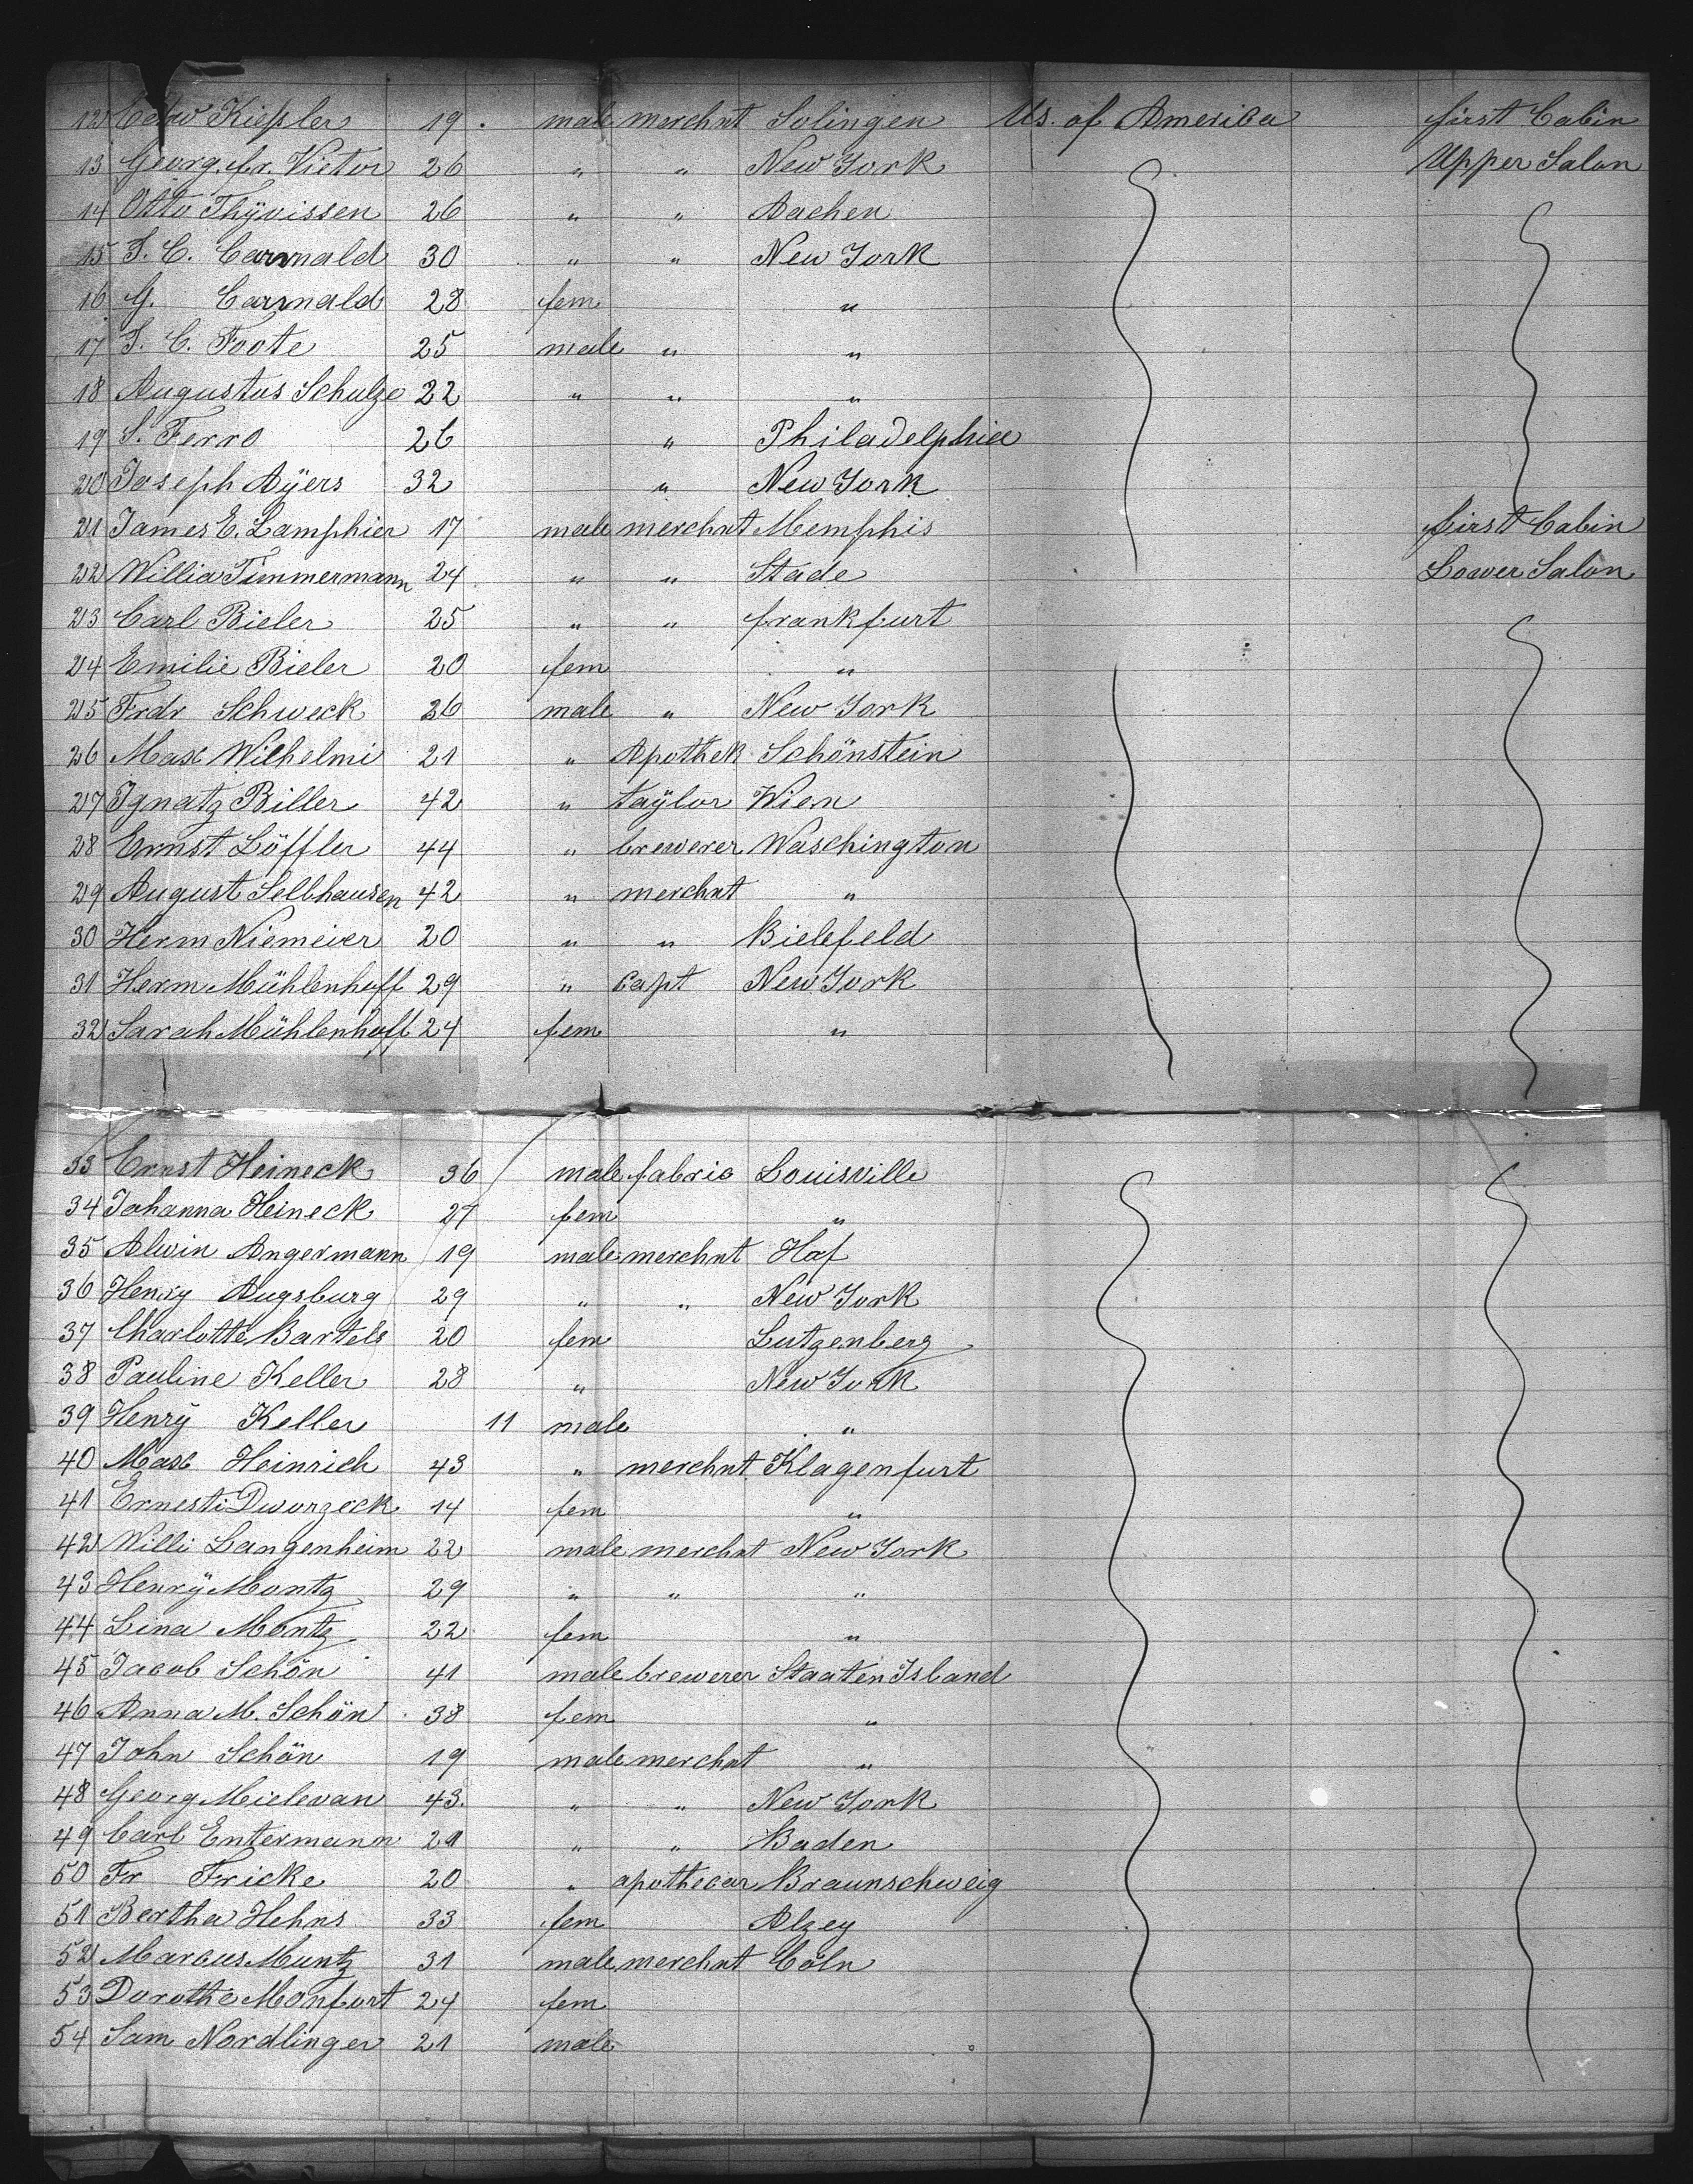 12 Edw Kiessler 19 male merchnt Solingen Us. of America first Cabin
13 Georg. fr. Vietor 26 " " New York Upper Salon
14 Otto Thÿvissen 26 " " Aachen
15 J. C. Carmald 30 " " New York
16 G. Carmald 28 fem "
17 J. C. Foote 25 male " "
18 Augustus Schulze 22 " " "
19 S. Ferro 26 " Philadelphia
20 Joseph Aÿers 32 " New York
21 James E. Lamphier 17 male merchnt Memphis first Cabin
22 Willia Timmermann 24 " " Stade Lower Salon
23 Carl Bieler 25 " " frankfurt
24 Emilie Bieler 20 fem "
25 Frdr Schweck 26 male " New York
26 Max Wilhelmi 21 " Apothek Schönstein
27 Ignatz Biller 42 " taÿlor Wien
28 Ernst Löffler 44 " brewerer Waschington
29 August Sellhausen 42 " merchnt "
30 Herm Niemeier 20 " " Bielefeld
31 Herm Mühlenhoff 29 " capt New York
32 Sarah Mühlenhoff 24 fem "
33 Ernst Heineck 36 male fabric Louisville
34 Johanna Heineck 27 fem "
35 Alwin Angermann 19 male merchnt Hof
36 Henry Augsburg 29 " " New York
37 Charlotte Bartels 20 fem Lutzenberg
38 Pauline Keller 28 " New York
39 Henrÿ Keller 11 male "
40 Max Heinrich 43 " merchnt Klagenfurt
41 Ernesti Dworzeck 14 fem "
42 Willi Langenheim 22 male merchnt New York
43 Henrÿ Montz 29 " " "
44 Lina Montz 22 fem "
45 Jacob Schön 41 male brewerer Staaten Island
46 Anna M. Schön 38 fem "
47 John Schön 19 male merchnt "
48 Georg Mielevan 43 " " New York
49 Carl Entermann 21 " " Baden
50 Fr Fricke 20 " apothecar Braunschweig
51 Bertha Hehns 33 fem Alzey
52 Marcus Muntz 31 male merchnt Cöln
53 Dorothe Monfort 24 fem
54 Sam Nordlinger 21 male